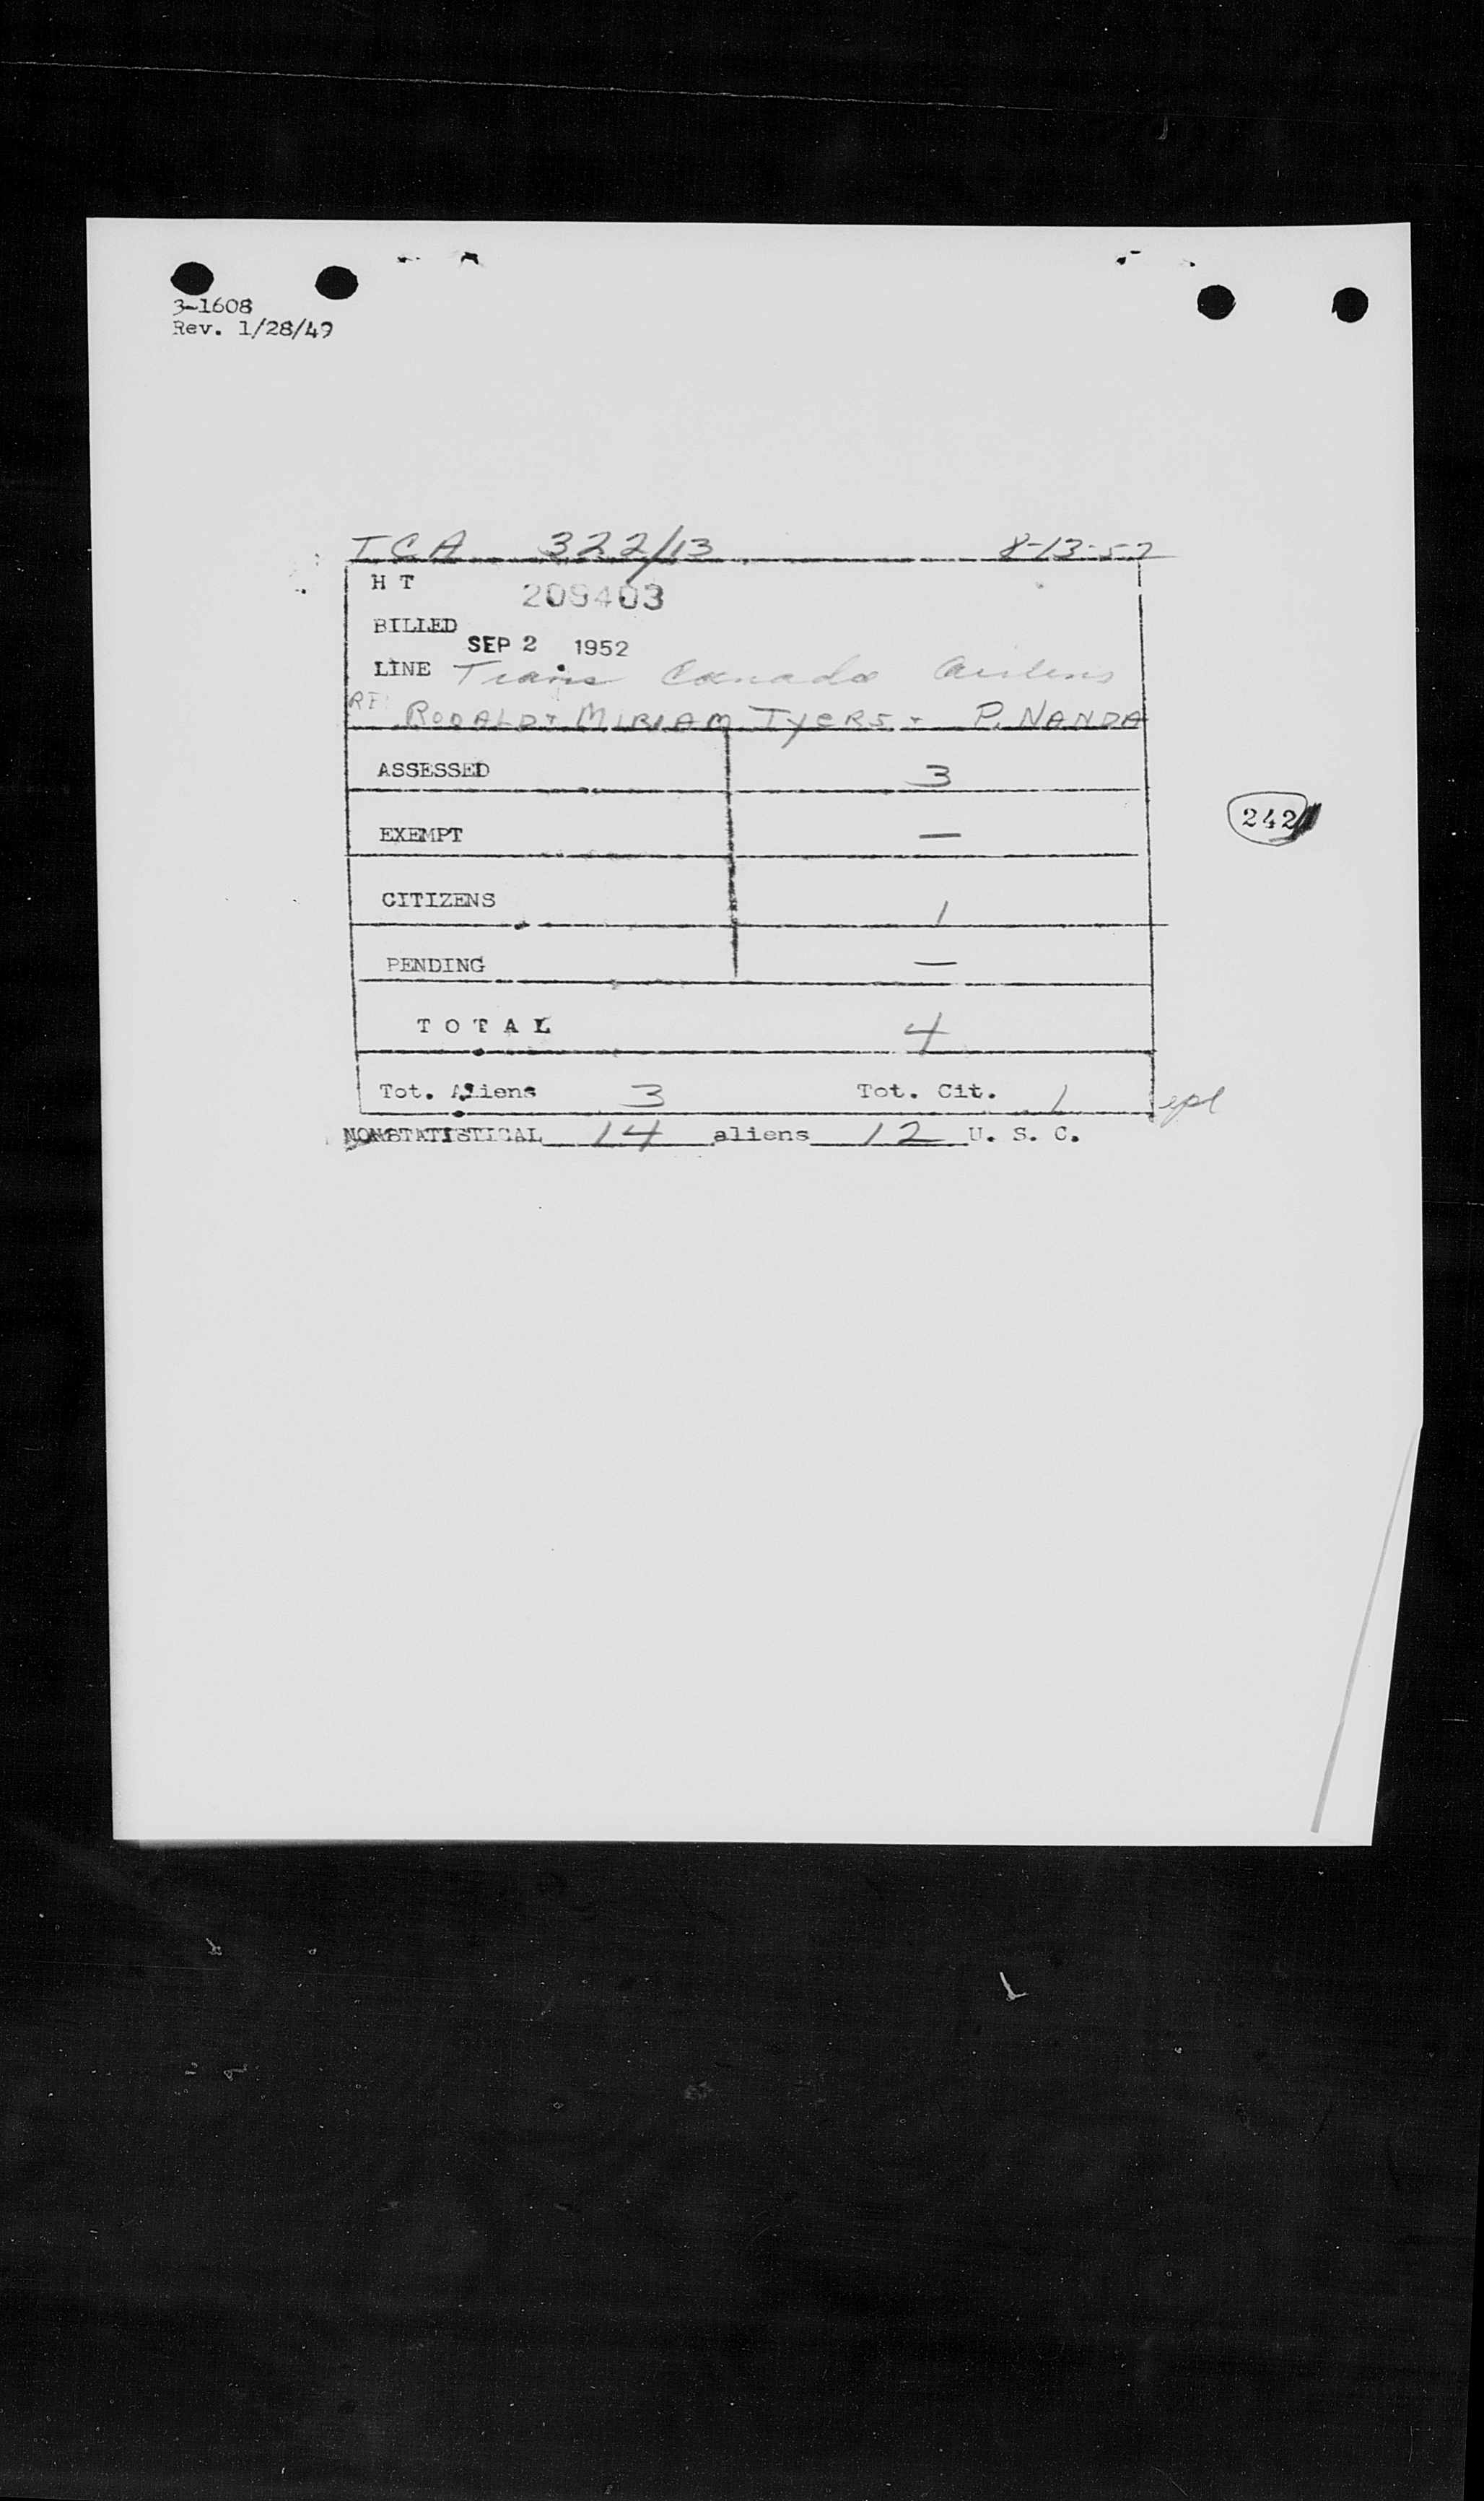 3-1608
Rev. 1/28/49
TCA 322/13 8-13-52
H T 209403
BILLED SEP 2 1952
LINE Trans Canada Airlines
RE: RODALD + MIRIAM TYERS + P. NANDA
ASSESSED 3
EXEMPT —
242
CITIZENS 1
PENDING —
TOTAL 4
Tot. Aliens 3 Tot. Cit. 1
NONSTATISTICAL 14 aliens 12 U. S. C.